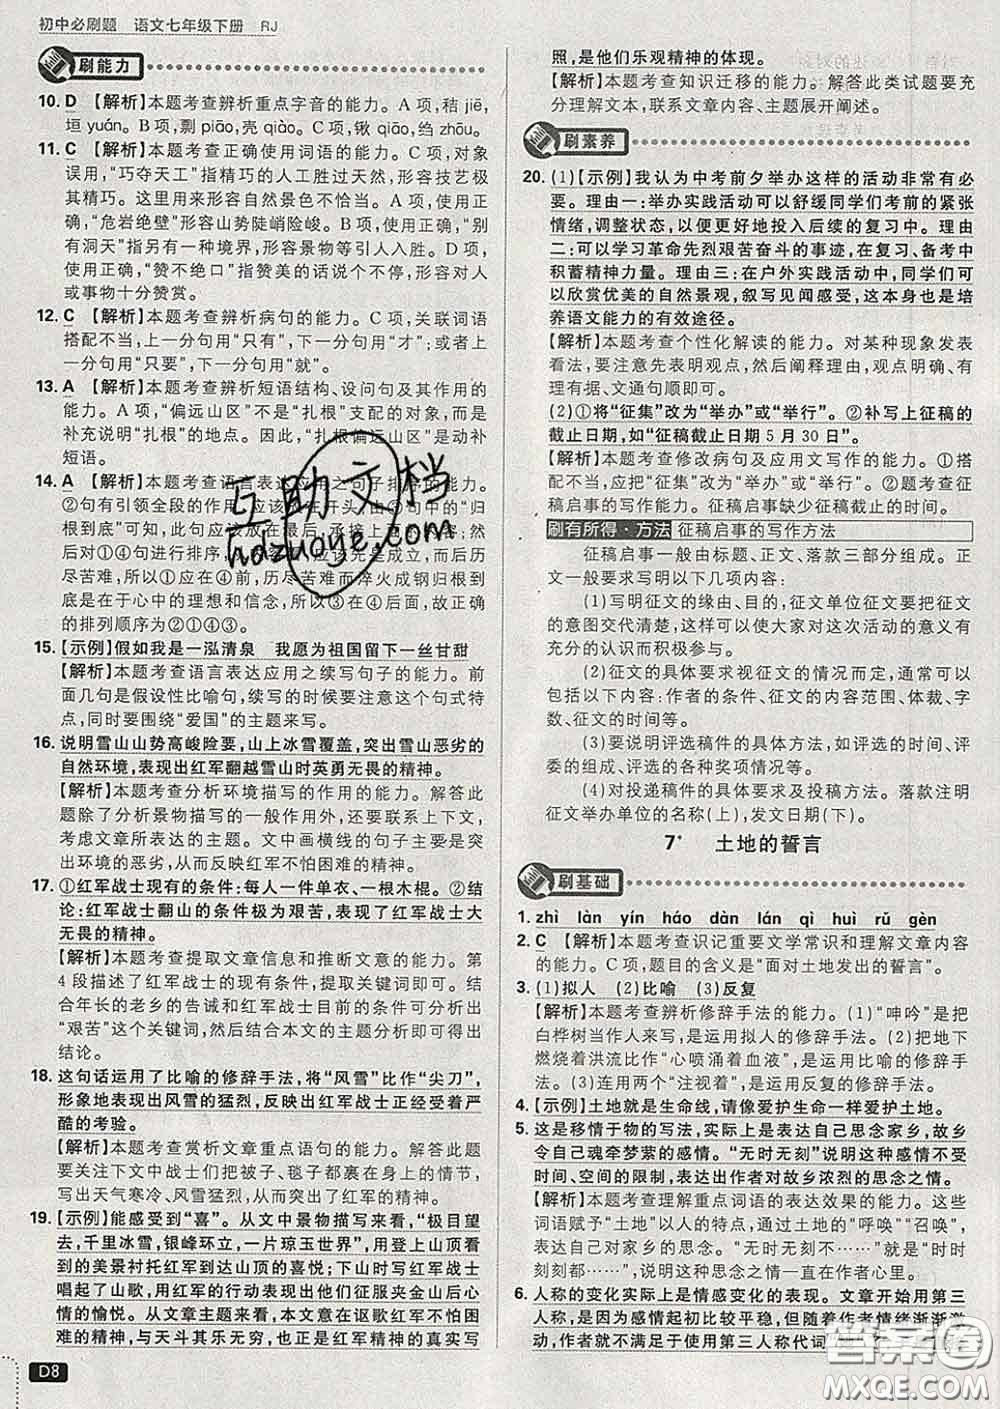 初中必刷题 语文七年级下册 RJ
刷能力
10. D 【解析】本题考查辨析重点字音的能力。A 项，秸 jiē，
垣 yuán。B 项，剽 piāo，壳 qiào。C 项，锹 qiāo，绉 zhōu。
11. C 【解析】本题考查正确使用词语的能力。C 项，对象
误用，“巧夺天工”指精巧的人工胜过天然，形容技艺极
其精巧。这里形容自然景色不恰当。A 项，使用正确，
“危岩绝壁”形容山势陡峭险峻。B 项，使用正确，“别
有洞天”指另有一种境界，形容景物等引人入胜。D 项，
使用正确，“赞不绝口”指赞美的话说个不停，形容对人
或事物十分赞赏。
12. C 【解析】本题考查辨析病句的能力。C 项，关联词语
搭配不当，上一分句用“只有”，下一分句用“才”；或者
上一分句用“只要”，下一分句用“就”。
13. A 【解析】本题考查辨析短语结构、设问句及其作用的
能力。A 项，“偏远山区”不是“扎根”支配的对象，而是
补充说明“扎根”的地点。因此，“扎根偏远山区”是动补
短语。
14. A 【解析】本题考查语言表达应用之句子排序的能力。
②句有引领全段的作用，应该放在开头；由①句中的“归
根到底”可知，此句应该放在最后，承接总结上文。然后
对①④句进行排序，
历尽苦难，所以①应在④前，历尽苦难而淬火成钢归根到
底是在于心中的理想和信念，所以③在④后面，故正确
的排列顺序为②①④③。
15. 【示例】假如我是一泓清泉 我愿为祖国留下一丝甘甜
【解析】本题考查语言表达应用之续写句子的能力。
前面几句是假设性比喻句，续写的时候要注意这个句式
特点，同时要围绕“爱国”的主题来写。
16. 说明雪山山势高峻险要，山上冰雪覆盖，突出雪山恶劣的
自然环境，表现出红军翻越雪山时英勇无畏的精神。
【解析】本题考查分析环境描写的作用的能力。解答此
题除了分析景物描写的一般作用外，还要联系上下文，
考虑文章所表达的主题。文中画横线的句子主要表现
出环境的恶劣，从而反映红军不怕困难的精神。
17. ①红军战士现有的条件：每人一件单衣、一根木棍。②结
论：红军战士翻山的条件极为艰苦，表现了红军战士大
无畏的精神。
【解析】本题考查提取文章信息和推断文意的能力。第
4 段描述了红军战士的现有条件，提取关键词即可。结
合年长的老乡的告诫和红军战士目前的条件可分析出
“艰苦”这个关键词，然后结合本文的主题分析即可得出
结论。
18. 这句话运用了比喻的修辞手法，将“风雪”比作“尖刀”，
形象地表现出风雪的猛烈，反映出红军战士正经受着严
酷的考验。
【解析】本题考查赏析文章重点语句的能力。解答此题
要关注下文中战士们把被子、毯子都裹在身上的情节，
写出天气寒冷、风雪猛烈，突出红军战士面临的考验。
19. 【示例】能感受到“喜”。从文中景物描写来看，“极目望
去，千里冰雪，银峰环立，一片琼玉世界”，用登上山顶看
到的美景衬托红军到达山顶的喜悦；下山时写红军战士
唱起了山歌，用红军的行动表现出他们征服夹金山后心
情的愉悦。从文章主题来看，本文意在讴歌红军不怕困
难的精神，与天斗其乐无穷，也是红军精神的真实写
照，是他们乐观精神的体现。
【解析】本题考查知识迁移的能力。解答此类试题要充
分理解文本，联系文章内容、主题展开阐述。
刷素养
20. (1)【示例】我认为中考前夕举办这样的活动非常有必
要。理由一：举办实践活动可以舒缓同学们考前的紧张
情绪，调整状态，以便更好地投入后续的复习中。理由
二：可以学习革命先烈艰苦奋斗的事迹，在复习、备考中
积蓄精神力量。理由三：在户外实践活动中，同学们可
以欣赏优美的自然景观，叙写见闻感受，这本身也是培
养语文能力的有效途径。
【解析】本题考查个性化解读的能力。对某种现象发表
看法，要注意先表明观点，然后阐释理由，观点明确、有
理有据、文通句顺即可。
(2)①将“征集”改为“举办”或“举行”。②补写上征稿的
截止日期，如“征稿截止日期 5 月 30 日”。
【解析】本题考查修改病句及应用文写作的能力。①搭
配不当，应把“征集”改为“举办”或“举行”。②考查征稿
启事的写作能力。征稿启事缺少征稿截止的时间。
刷有所得·方法 征稿启事的写作方法
征稿启事一般由标题、正文、落款三部分组成。正
文一般要求写明以下几项内容：
(1)写明征文的缘由、目的，征文单位征文要把征文
的意图交代清楚，这样可以使大家对这次活动的意义有
充分的认识而积极参与。
(2)征文的具体要求视征文的情况而定，通常可以
包括以下内容：作者的条件、征文的内容范围、体裁、字
数、征文的时间等。
(3)要说明评选稿件的具体方法，如评选的时间、评
委的组成、评选的各种奖项情况等。
(4)对投递稿件的具体要求及投稿方法。落款注明
征文举办单位的名称(上)，发文日期(下)。
7* 土地的誓言
刷基础
1. zhì làn yín háo dàn lán qì huì rǔ gèn
2. C 【解析】本题考查识记重要文学常识和理解文章内容
的能力。C 项，题目的含义是“面对土地发出的誓言”。
3. (1)拟人 (2)比喻 (3)反复
【解析】本题考查辨析修辞手法的能力。(1)“呻吟”是把
白桦树当作人来写，是运用拟人的修辞手法。(2)把地下
燃烧着洪流比作“心喷涌着血液”，是运用比喻的修辞手
法。(3)连用两个“注视着”，是运用反复的修辞手法。
4. 【示例】土地就是生命线，请像爱护生命一样爱护土地。
5. 这是移情于物的写法，实际上是表达自己思念家乡，故乡
令自己魂牵梦萦的感情。“无时无刻”说明这种感情不受
时间、空间的限制，表达出作者对故乡浓烈的思念之情。
【解析】本题考查理解重点词语的表达效果的能力。这些
词语赋予“土地”以人的特点，通过土地的“呼唤”“召唤”，
表达自己对家乡的思念。“无时无刻不……”就是“时时
刻刻都……”，说明这种思念之情一直在作者心里。
6. 人称的变化实际上是情感变化的表现。文章开始用第三
人称，是因为感情起初比较平稳，但随着作者情绪渐渐激
动，作者就不满足于使用第三人称代词
D8
互助文档
hdzuoye.com
答案圈
MXQE.COM